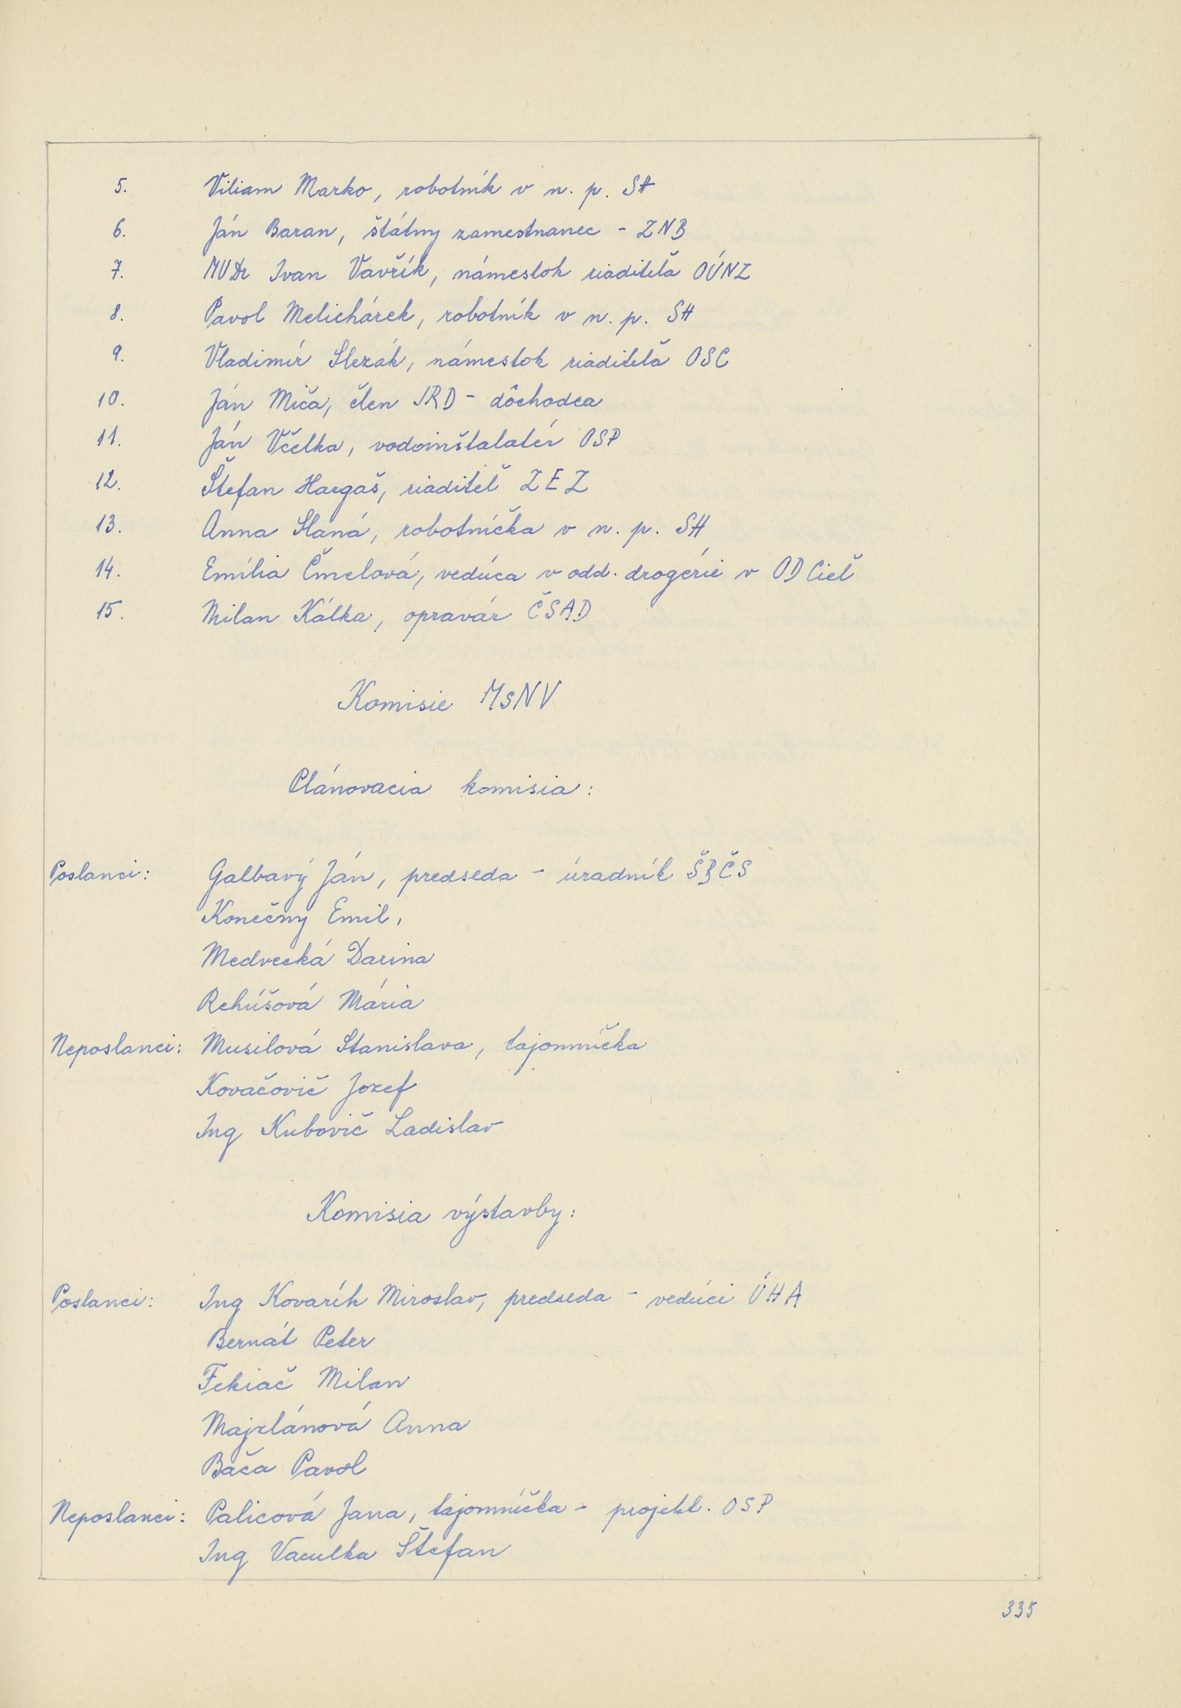 5. Viliam Marko, robotník v n. p. SH
6. Ján Baran, štátny zamestnanec - ZNB
7. MUDr Ivan Vavřík, námestok riaditeľa OÚNZ
8. Pavol Melichárek, robotník v n. p. SH
9. Vladimír Slezák, námestok riaditeľa OSC
10. Ján Miča, člen JRD - dôchodca
11. Ján Včelka, vodoinštalatér OSP
12. Štefan Hargaš, riaditeľ ZEZ
13. Anna Slaná, robotníčka v n. p. SH
14. Emília Čmelová, vedúca v odd. drogérie v OD Cieľ
15. Milan Kálka, opravár ČSAD
Komisie MsNV
Plánovacia komisia:
Poslanci: Galbavý Ján, predseda - úradník ŠBČS
Konečny Emil,
Medvecká Darina
Rehúšová Mária
Neposlanci: Musilová Stanislava, tajomníčka
Kovačovič Jozef
Ing Kubovič Ladislav
Komisia výstavby:
Poslanci: Ing Kovarík Miroslav, predseda - vedúci ÚHA
Bernát Peter
Fekiač Milan
Majzlánová Anna
Bača Pavol
Neposlanci: Palicová Jana, tajomníčka - projekt. OSP
Ing Vaculka Štefan
335